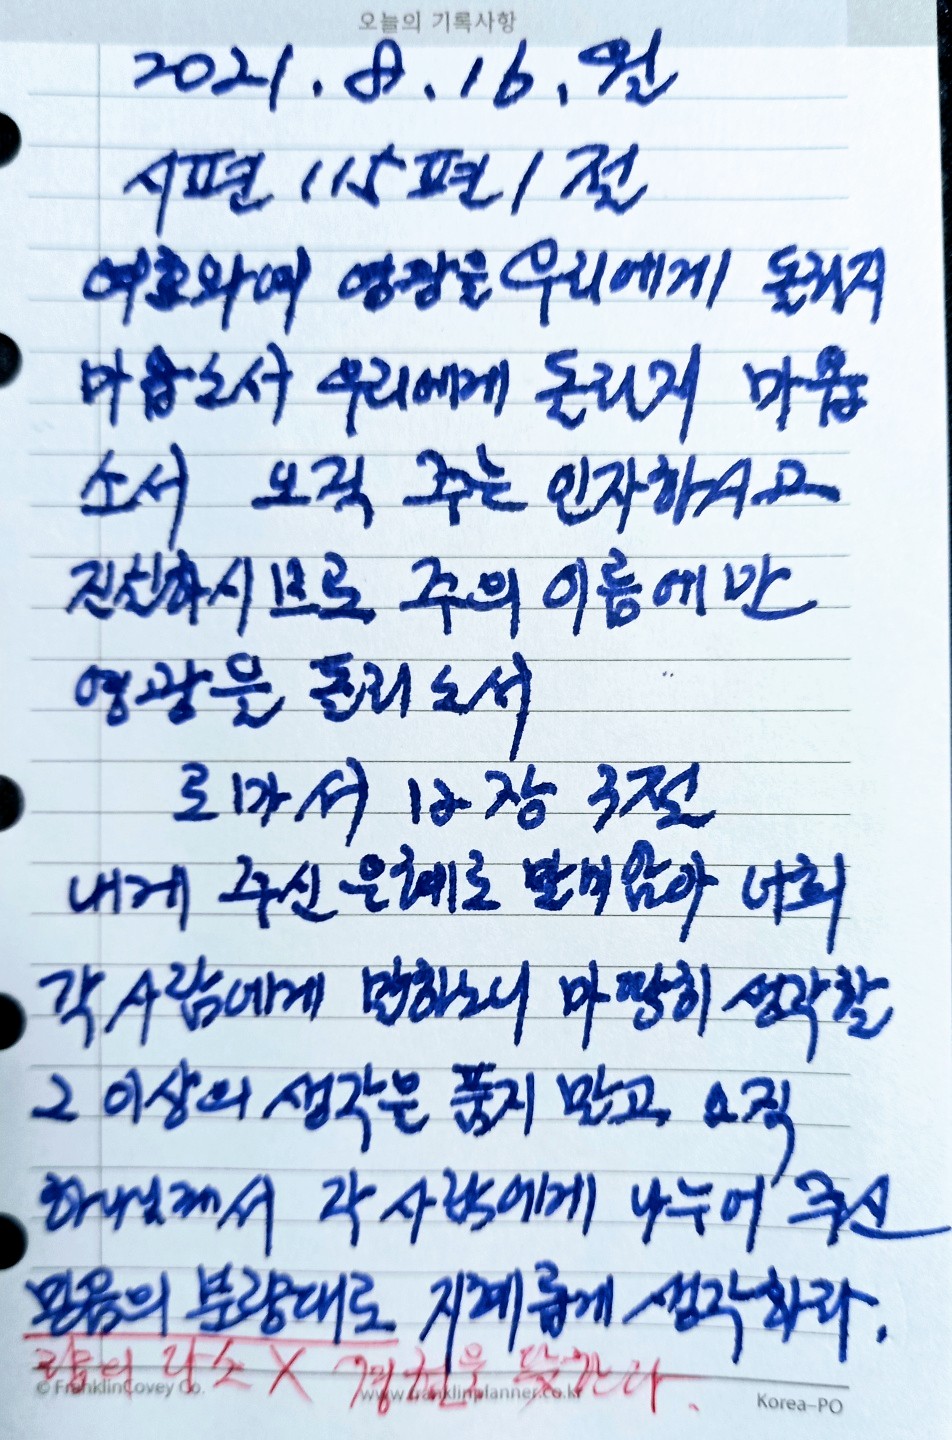 오늘의 기록사항
2021. 8. 16. 월
시편 115편 1절
여호와여 영광을 우리에게 돌리지
마옵소서 우리에게 돌리지 마옵
소서 오직 주는 인자하시고
진실하시므로 주의 이름에만
영광을 돌리소서
로마서 12장 3절
내게 주신 은혜로 말미암아 너희
각 사람에게 말하노니 마땅히 생각할
그 이상의 생각을 품지 말고 오직
하나님께서 각 사람에게 나누어 주신
믿음의 분량대로 지혜롭게 생각하라.
X
© FranklinCovey Co. www.franklinplanner.co.kr Korea-PO